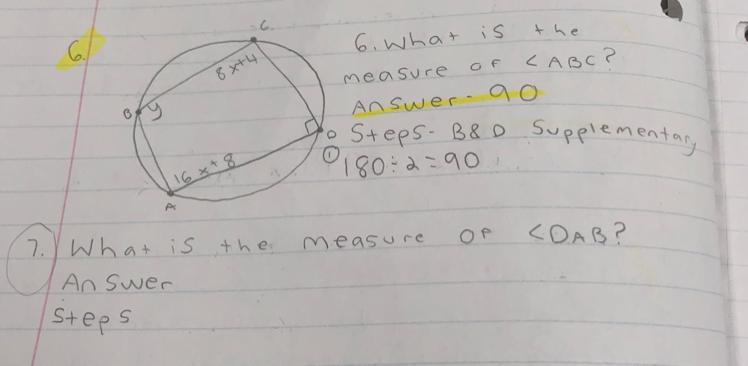 6.
C
8x+4
B
y
D
16x+8
A
6. What is the
measure of <ABC?
Answer - 90
Steps - B&D Supplementary
① 180÷2=90
7. What is the measure of <DAB?
Answer
Steps